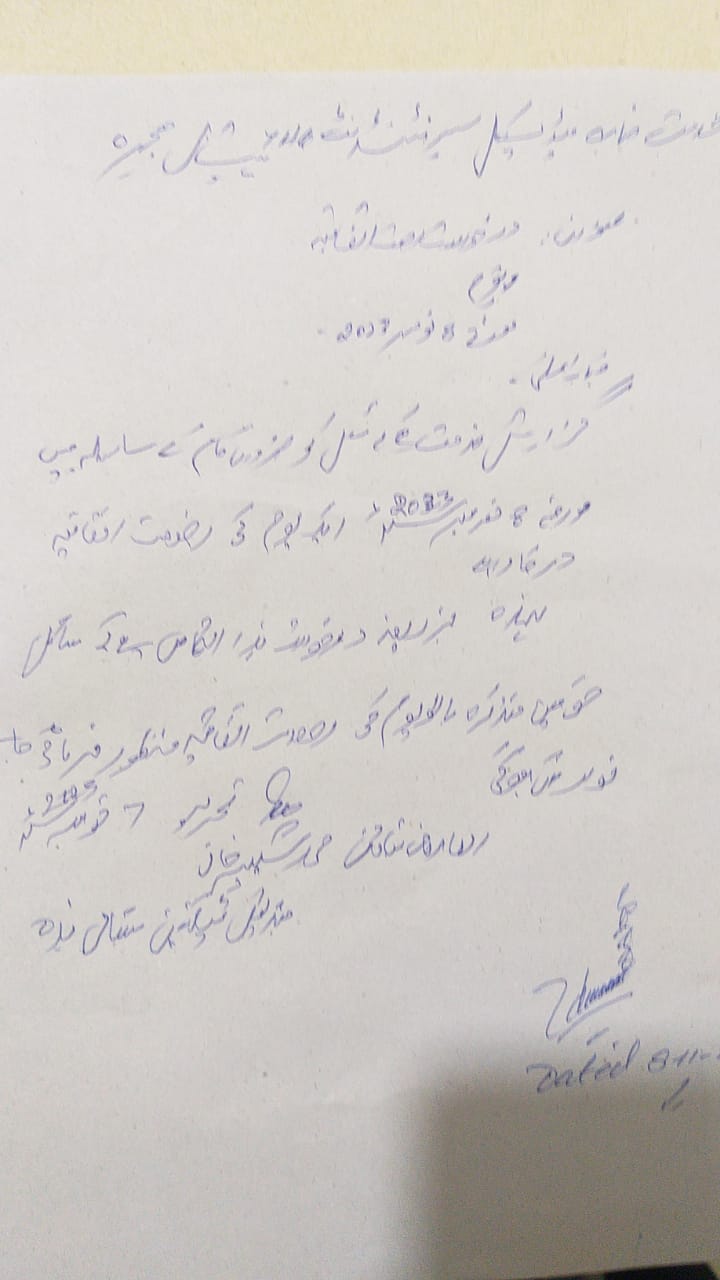 بخدمت جناب میڈیکل سپرنٹنڈنٹ ہسپتال ہجیرہ
عنوان: درخواست رخصت اتفاقیہ
یوم
مورخہ 8 نومبر 2023
جناب عالی۔
گزارش خدمت ہے کہ سائل کو ضروری کام کے سلسلہ میں
مورخہ 8 نومبر 2023 ایک یوم کی رخصت اتفاقیہ
درکار ہے
لہذا بذریعہ درخواست ہذا التماس ہے کہ سائل
کے حق میں متذکرہ بالا یوم کی رخصت اتفاقیہ منظور فرمائی جا
نوازش ہوگی
تحریر 7 نومبر 2023
العارض محمد شبیر خان
میڈیکل ٹیکنیشن ہسپتال ہذا
Dated 8-11-